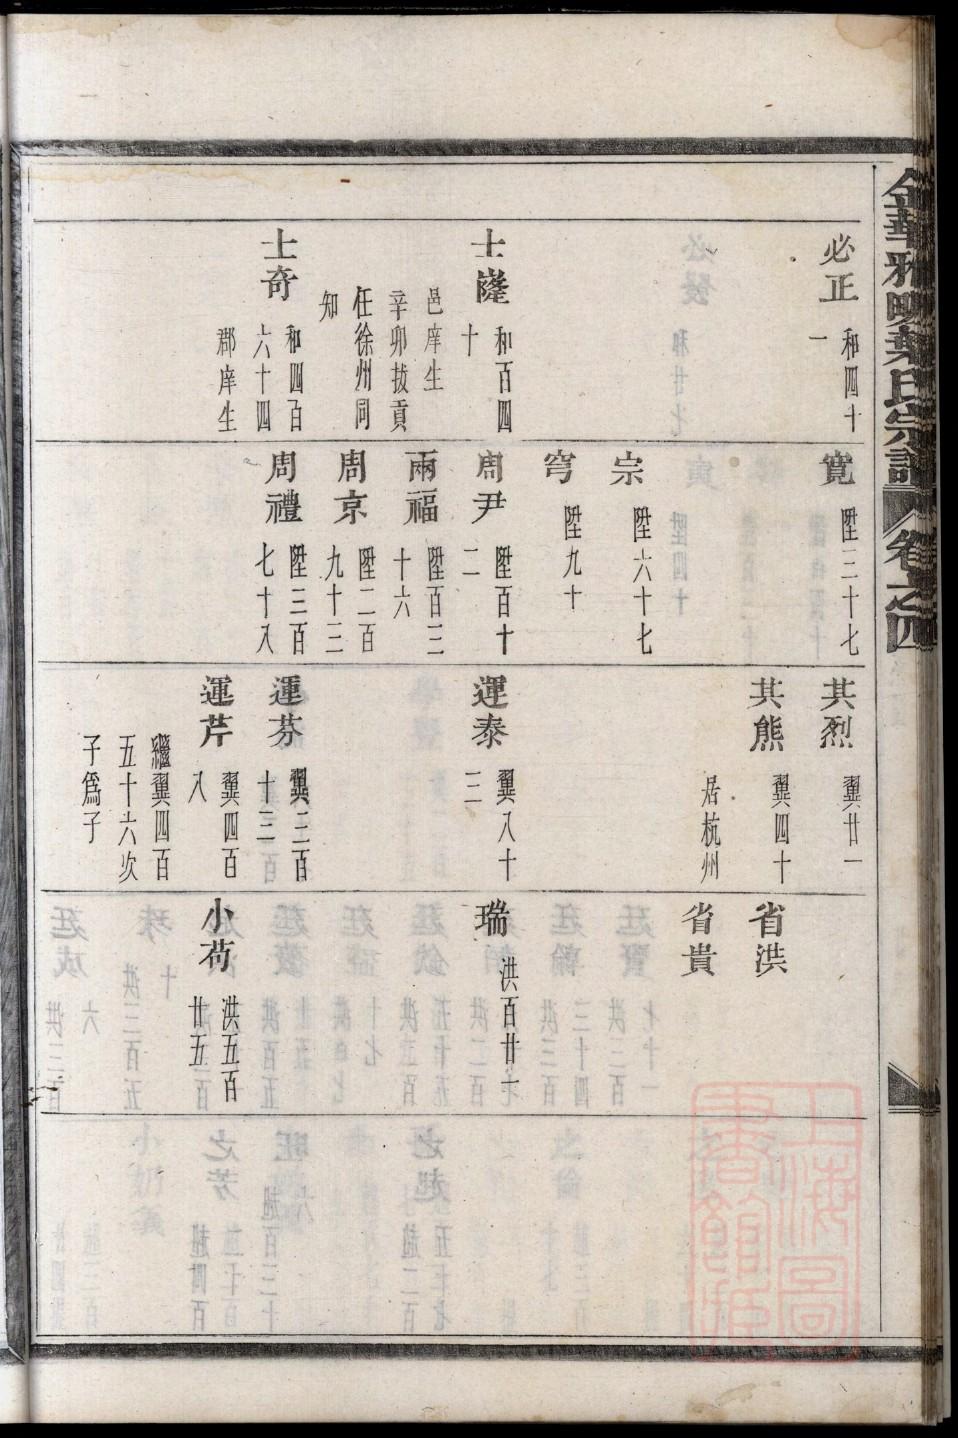 金華雅畈葉氏宗譜 卷之四
必正 和四十一
士嶐 和百四十
邑庠生
辛卯拔貢
任徐州同知
士奇 和四百六十四
郡庠生
寬 陞三十七
宗 陞六十七
穹 陞九十
周尹 陞百十二
兩福 陞百三十六
周京 陞二百九十三
周禮 陞三百七十八
其烈 翼廿一
其熊 翼四十
居杭州
運泰 翼八十三
運芬 翼三百十三
運芹 翼四百八
繼翼四百
五十六次
子為子
省洪
省貴
瑞 洪百廿一
小荷 洪五百廿五
上海圖書館藏